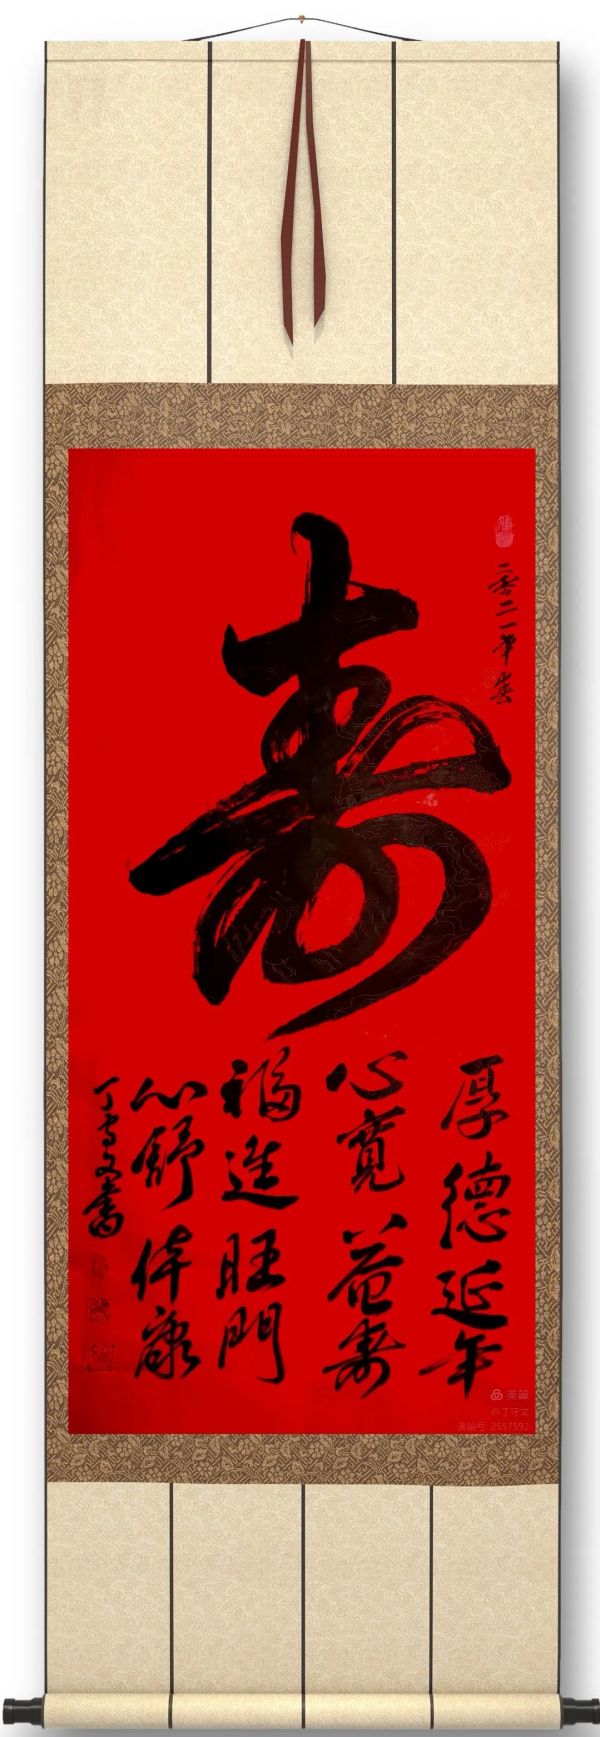 寿
二零二一年春
厚德延年
心宽益寿
福進旺門
心舒体康
丁守文書
美篇
@丁守文
美篇号: 2557592